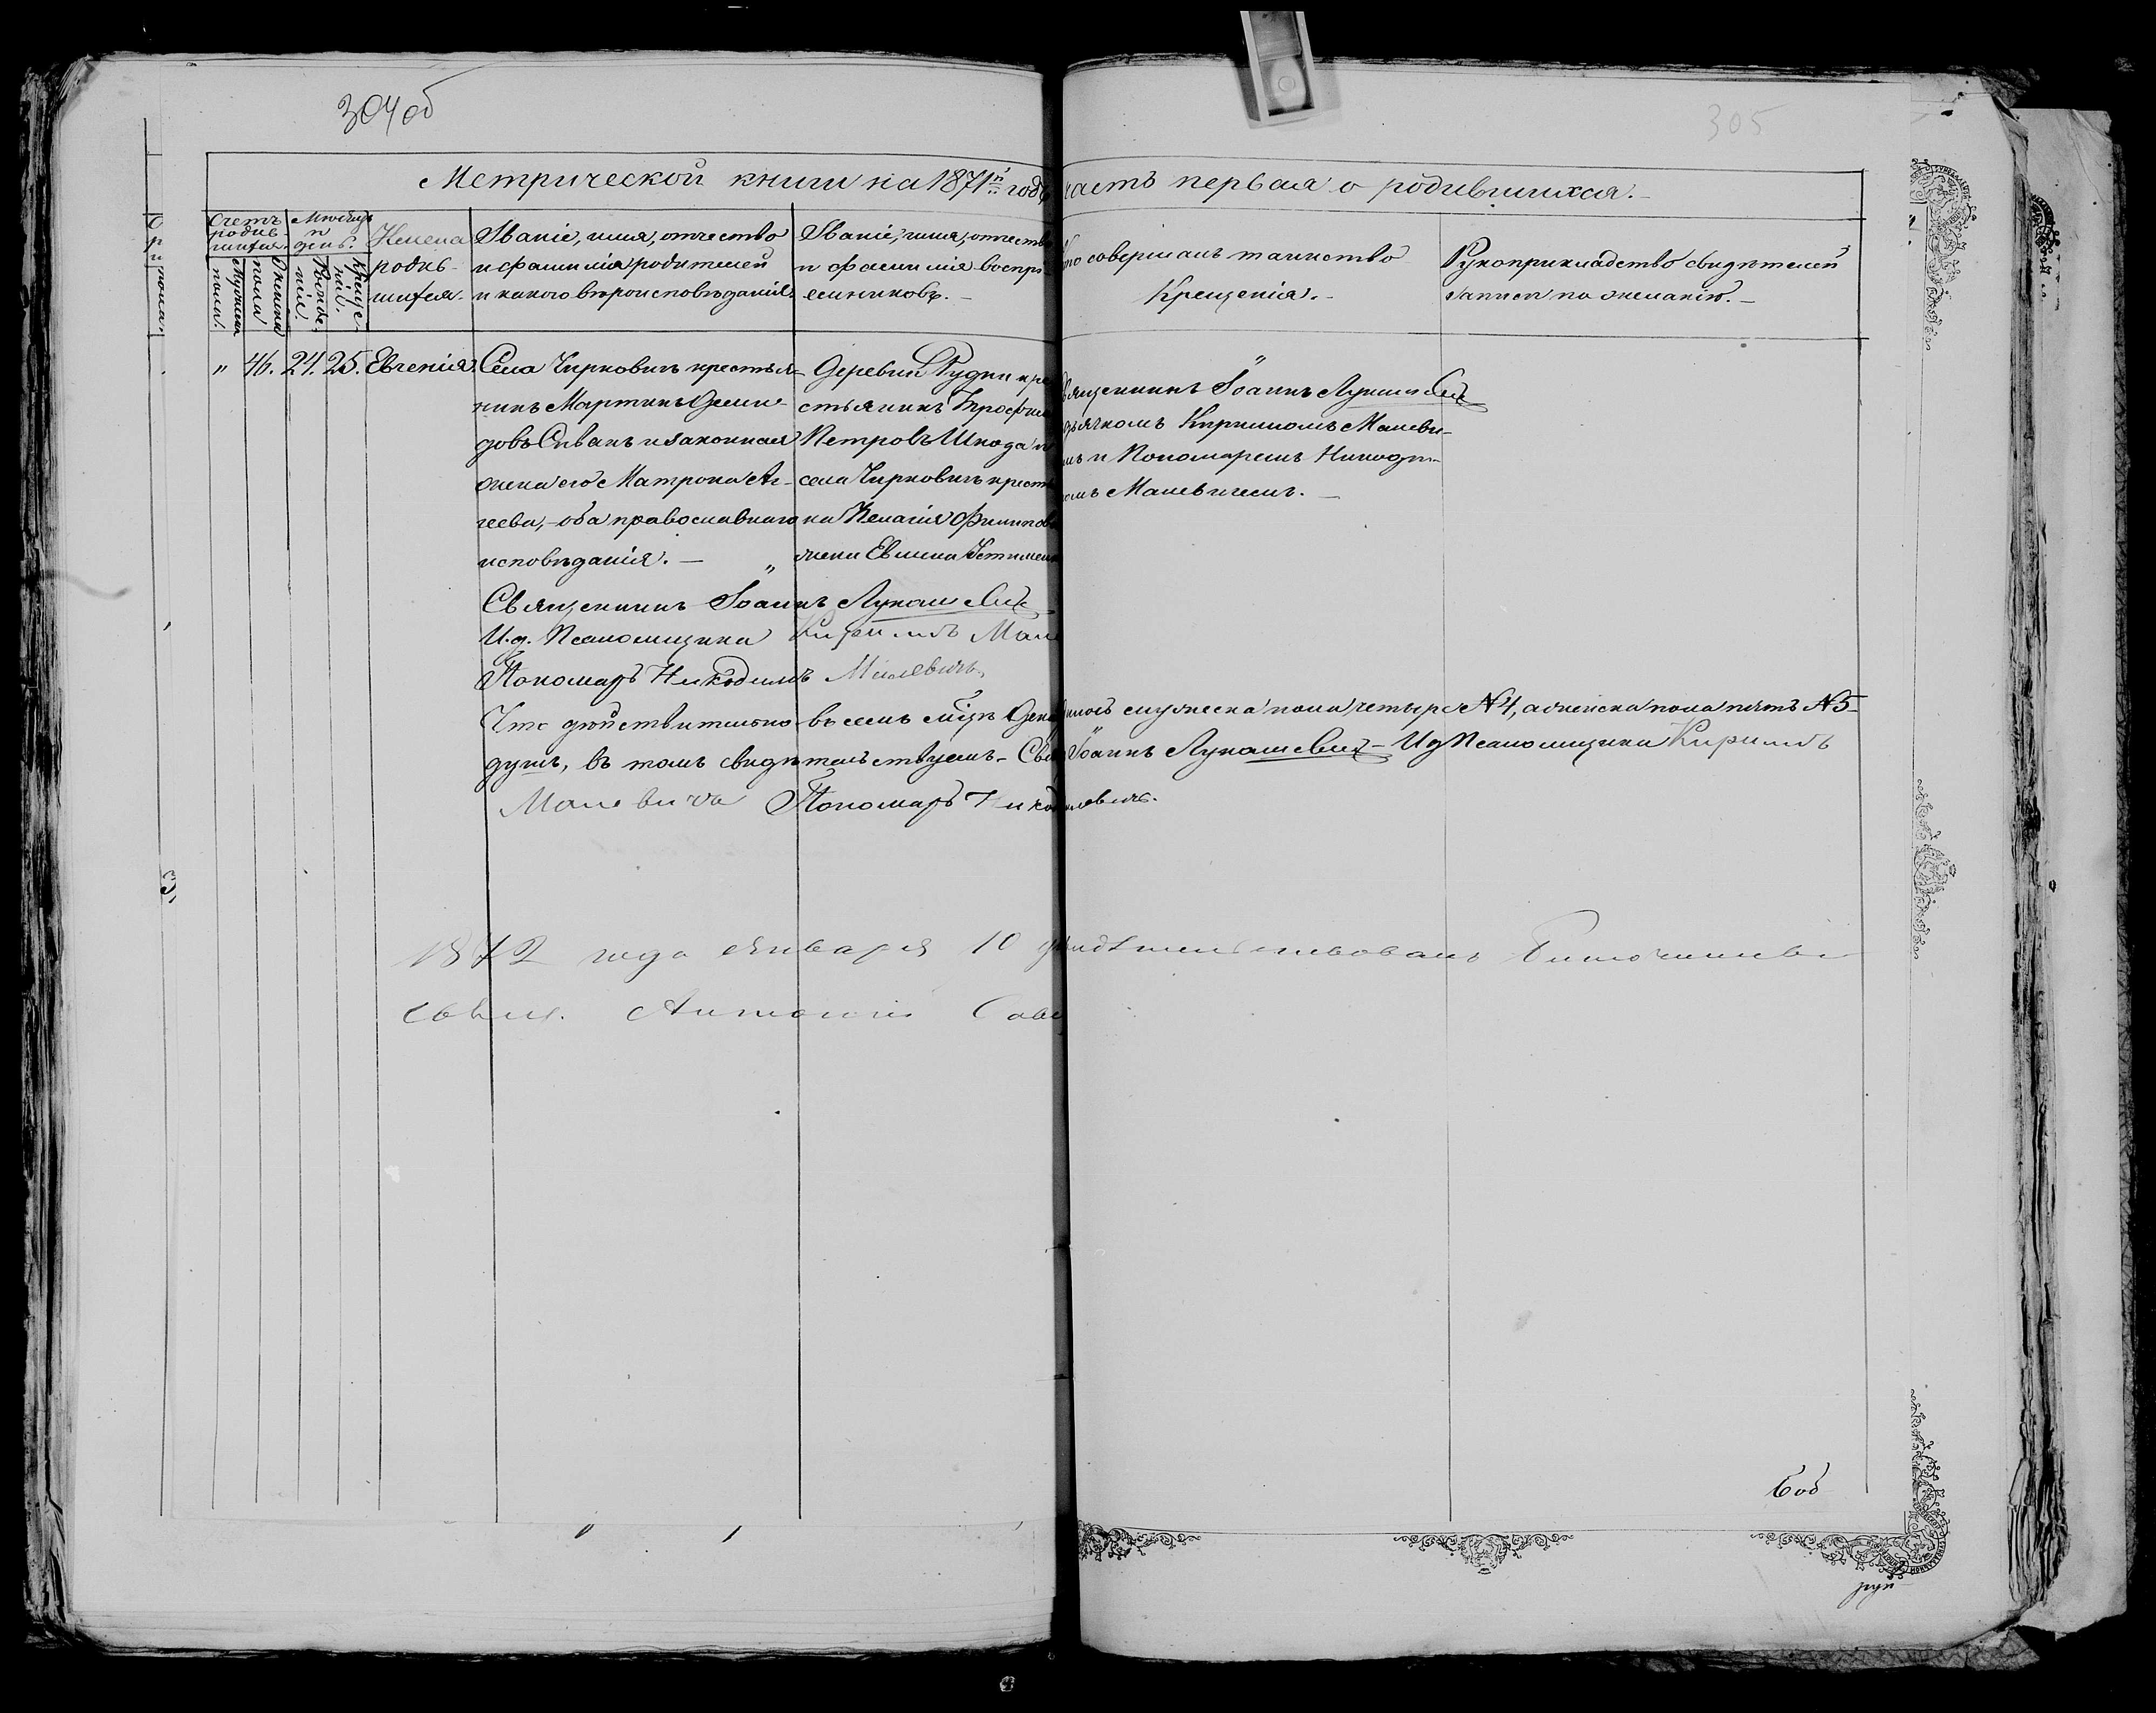 304 об
305
Метрической книги на 1871й годъ часть первая о родившихся.
Счетъ родившихся.
Мужеска пола.
Женска пола
Мѣсяцъ и день.
Рожденія.
Крещенія.
Имена родившихся.
Званіе, имя, отчество
и фамилія родителей
и какого вѣроисповѣданія.
Званіе, имя, отчество
и фамилія воспрі
емниковъ.
совершалъ таинство
Крещенія.
Рукоприкладство свидѣтелей
записи по желанію.
" 46. 24. 25. Евгенія.
Села Чирковичъ крестья-
нинъ Мартинъ Деми-
довъ Спванъ и законная
жена его Матрона Аг-
геева, оба православнаго
исповѣданія. —
Деревни Рудни кре
стьянинъ Трофим
Петровъ Шкода и
села Чирковичъ кресть
ка Пелагія Филипов
жена Евмена Устимен
священникъ Іоаннъ Лукашевичъ
дьячкомъ Кирилломъ Малеви-
мъ и Пономаремъ Никоди-
омъ Малевичемъ. —
Священникъ Іоаннъ Лукашевичъ
И.д. Псаломщика Кириллъ Мале
Пономаръ Никодимъ Малевичъ
Что дѣйствительно въ семъ мцѣ Дека лось мужеска пола четыре №4, а женска пола пять №5
душъ, въ томъ свидѣтельствуемъ. Свящ Іоаннъ Лукашевичъ — И д Псаломщика Кириллъ
Малевичъ Пономаръ Никод левичъ.
1872 года Января 10 дня свидѣтельствовалъ Благочинный
Свящ. Антоній Сав
6 об